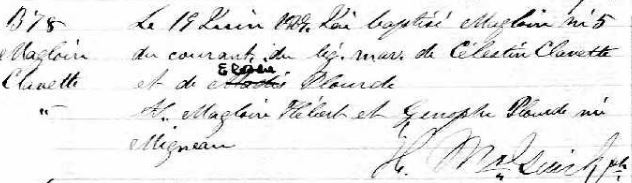 B 78
Magloire
Clavette
"
Le 19 Juin 1909. J'ai baptisé Magloire né 5
du courant du lég. mar. de Célestin Clavette
et de Plourde
Magloire Hébert et Plourde née
Migneau
H.